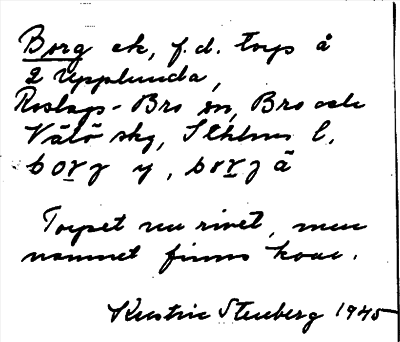 Borg ek, f.d. torp å
2 Upplunda,
Roslags-Bro sn, Bro och
Vätö skg, Sthlms l.
borg y, borg ä
Torpet nu rivet, men
namnet finns kvar.
Kerstin Stenberg 1945